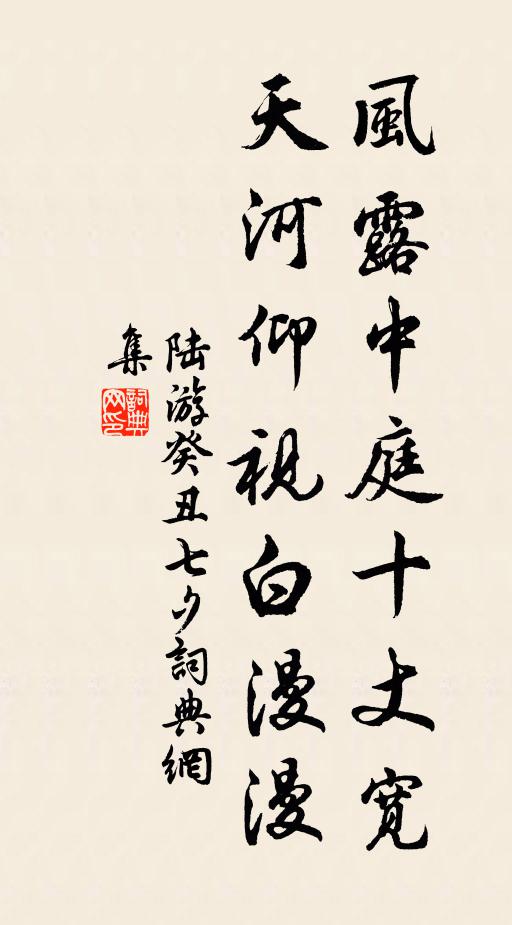 風露中庭十丈寬
天河仰視白漫漫
陆游癸丑七夕詞典網
集
詞典网印